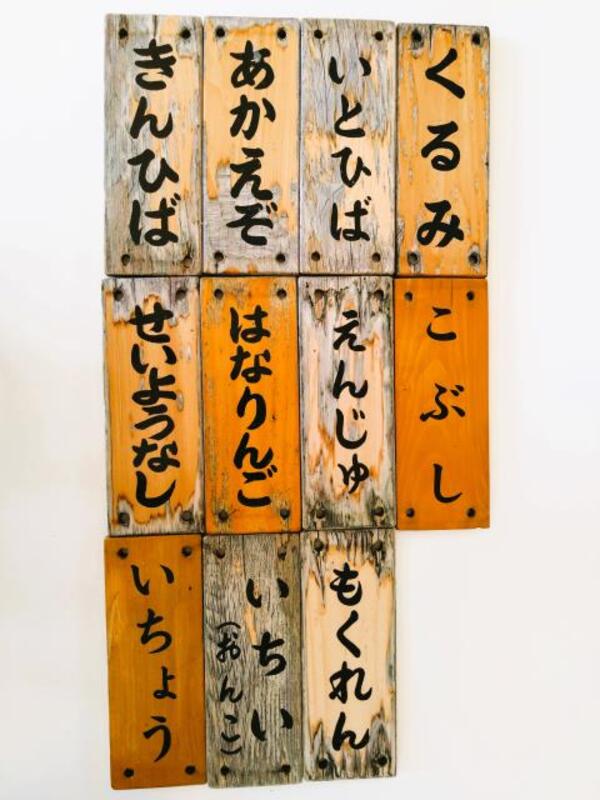 くるみ
いとひば
あかえぞ
きんひば
こぶし
えんじゅ
はなりんご
せいようなし
もくれん
いちい
(おんこ)
いちょう